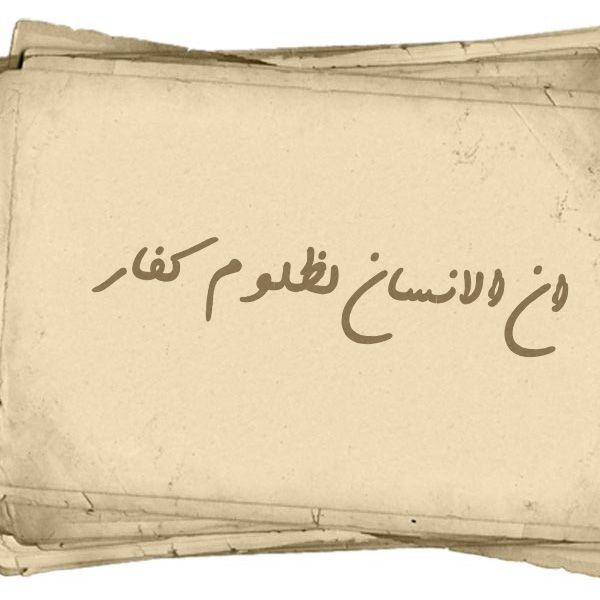 ان الانسان لظلوم کفار